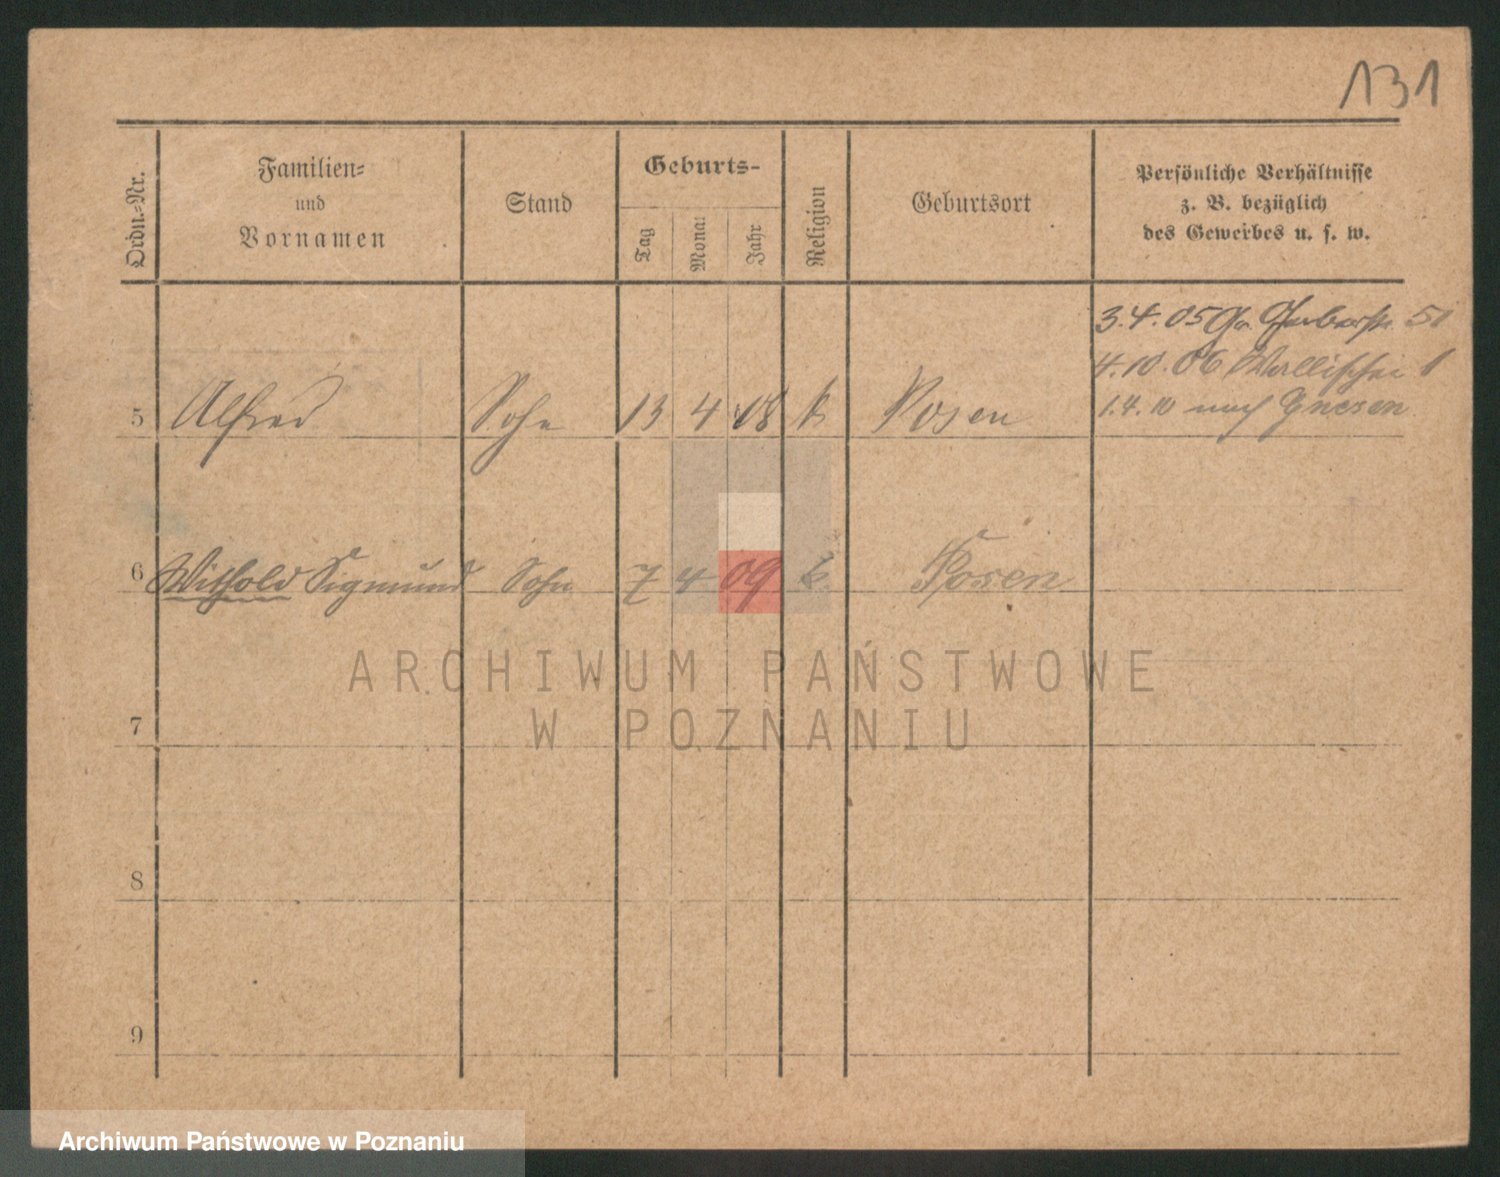 131
Ordn.-Nr.
Familien-
und
Vornamen
Stand
Geburts-
Tag
Monat
Jahr
Religion
Geburtsort
Persönliche Verhältnisse
z. B. bezüglich
des Gewerbes u. s. w.
3.4.05 Gr. Gerberstr. 51
4.10.06 Wallischei 1
1.4.10 nach Gnesen
5 Alfred Sohn 13 4 08 k Posen
6 Withold Sigmund Sohn 7 4 09 k. Posen
7
8
9
ARCHIWUM PAŃSTWOWE
W POZNANIU
Archiwum Państwowe w Poznaniu